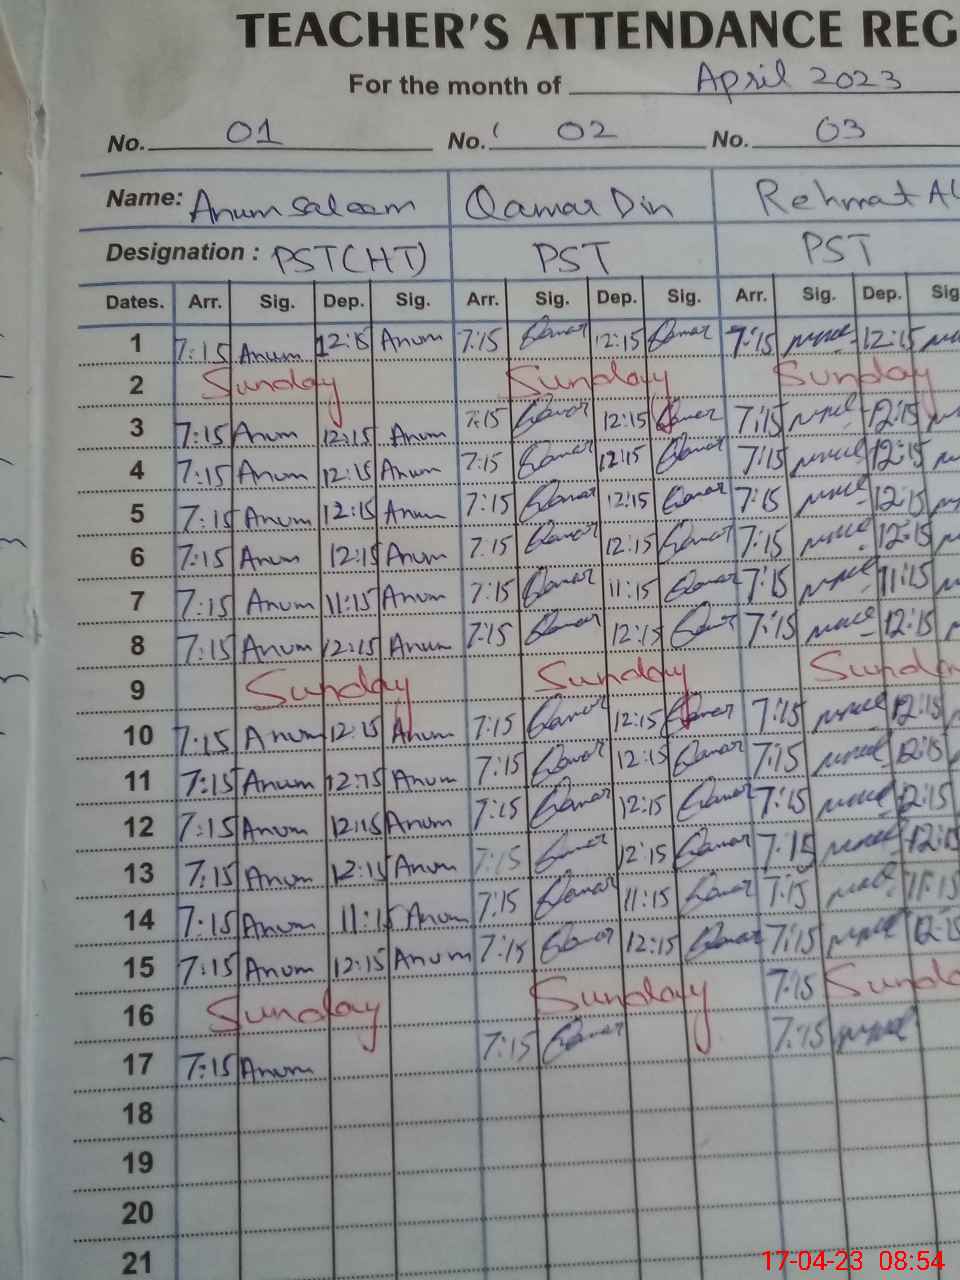 TEACHER'S ATTENDANCE REG
For the month of April 2023
No. 01 No. 02 No. 03
Name: Anum Saleem Qamar Din Rehmat Al
Designation : PST(HT) PST PST
Dates. Arr. Sig. Dep. Sig. Arr. Sig. Dep. Sig. Arr. Sig. Dep. Sig
1 7:15 Anum 12:15 Anum 7:15 Qamar 12:15 Qamar 7:15 12:15
2 Sunday Sunday Sunday
3 7:15 Anum 12:15 Anum 7:15 Qamar 12:15 Qamar 7:15 12:15
4 7:15 Anum 12:15 Anum 7:15 Qamar 12:15 Qamar 7:15 12:15
5 7:15 Anum 12:15 Anum 7:15 Qamar 12:15 Qamar 7:15 12:15
6 7:15 Anum 12:15 Anum 7:15 Qamar 12:15 Qamar 7:15 12:15
7 7:15 Anum 11:15 Anum 7:15 Qamar 11:15 Qamar 7:15 11:15
8 7:15 Anum 12:15 Anum 7:15 Qamar 12:15 Qamar 7:15 12:15
9 Sunday Sunday Sunday
10 7:15 Anum 12:15 Anum 7:15 Qamar 12:15 Qamar 7:15 12:15
11 7:15 Anum 12:15 Anum 7:15 Qamar 12:15 Qamar 7:15 12:15
12 7:15 Anum 12:15 Anum 7:15 Qamar 12:15 Qamar 7:15 12:15
13 7:15 Anum 12:15 Anum 7:15 Qamar 12:15 Qamar 7:15 12:15
14 7:15 Anum 11:15 Anum 7:15 Qamar 11:15 Qamar 7:15 11:15
15 7:15 Anum 12:15 Anum 7:15 Qamar 12:15 Qamar 7:15 12:15
16 Sunday Sunday 7:15 Sunda
17 7:15 Anum 7:15 Qamar 7:15
18
19
20
21
17-04-23 08:54